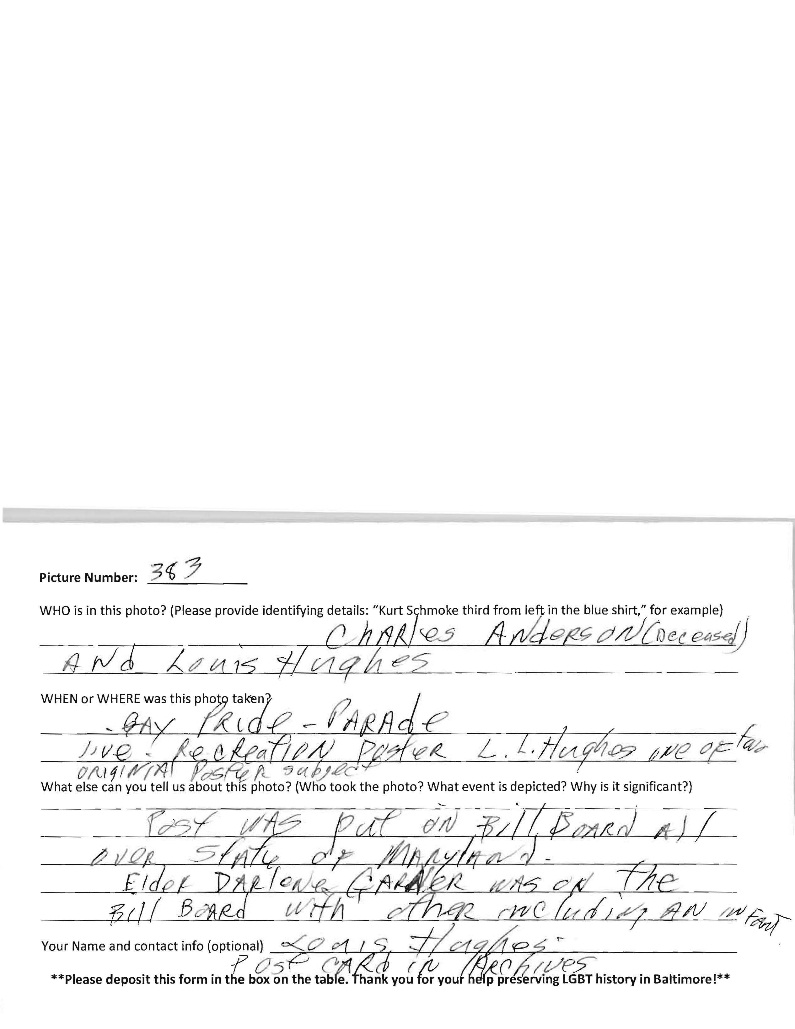 Picture Number: 383
WHO is in this photo? (Please provide identifying details: "Kurt Schmoke third from left in the blue shirt," for example)
CHARles ANdersoN (Deceased)
ANd Louis Hughes
WHEN or WHERE was this photo taken?
- GAY PRIde - PARAde
live - ReCReatioN Poster L.L. Hughes one of
ORIGINIAl Poster subject
What else can you tell us about this photo? (Who took the photo? What event is depicted? Why is it significant?)
Post WAS put ON Bill BOARD All
OVER State of MARYlANd -
Elder DARleNe GARNER was on The
Bill BOARD with other including AN infant
Your Name and contact info (optional) Louis Hughes -
POST CARd IN ARChives
**Please deposit this form in the box on the table. Thank you for your help preserving LGBT history in Baltimore!**